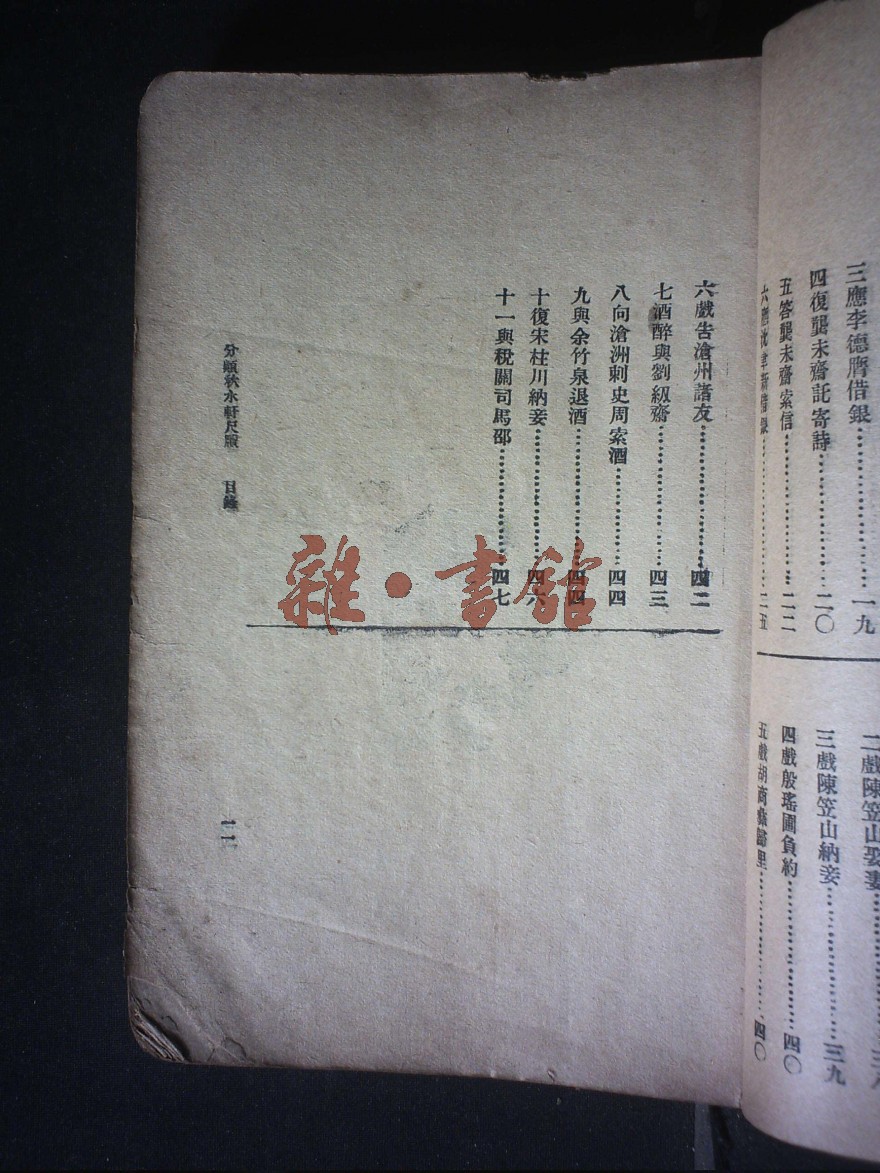 三應李德膺借銀……一九
四復龔未齋託寄詩……二〇
五答龔未齋索信……二二
借銀……二五
二戲陳笠山娶妻……三八
三戲陳笠山納妾……三九
四戲殷瑤圃負約……四〇
五戲胡商……里……四〇
六戲告滄州諸友……四二
七酒醉與劉級齋……四三
八向滄洲刺史周索酒……四四
九與余竹泉退酒……四四
十復宋柱川納妾……四六
十一與稅關司馬邵……四七
分類秋水軒尺牘 目錄
二
雜·書館